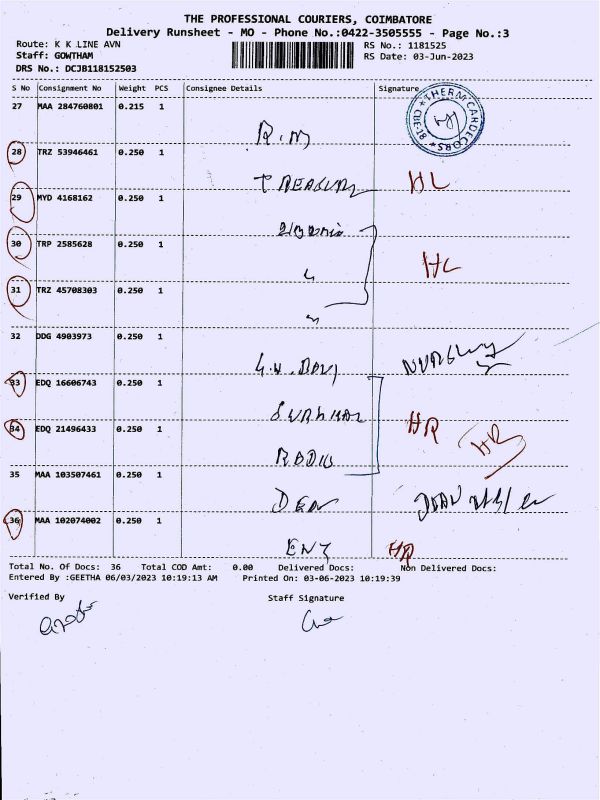 THE PROFESSIONAL COURIERS, COIMBATORE
Delivery Runsheet - MO - Phone No.:0422-3505555 - Page No.:3
Route: K K LINE AVN
RS No.: 1181525
Staff: GOWTHAM
RS Date: 03-Jun-2023
DRS No.: DCJB118152503
S No Consignment No Weight PCS Consignee Details Signature
27 MAA 284760801 0.215 1
THERM CARDECORS
R.M
28 TRZ 53946461 0.250 1
HL
29 MYD 4168162 0.250 1
30 TRP 2585628 0.250 1
HL
31 TRZ 45708303 0.250 1
32 DDG 4903973 0.250 1
33 EDQ 16606743 0.250 1
HR
34 EDQ 21496433 0.250 1
HR
35 MAA 103507461 0.250 1
DEAN
36 MAA 102074002 0.250 1
HR
Total No. Of Docs: 36 Total COD Amt: 0.00 Delivered Docs: Non Delivered Docs:
Entered By :GEETHA 06/03/2023 10:19:13 AM Printed On: 03-06-2023 10:19:39
Verified By Staff Signature